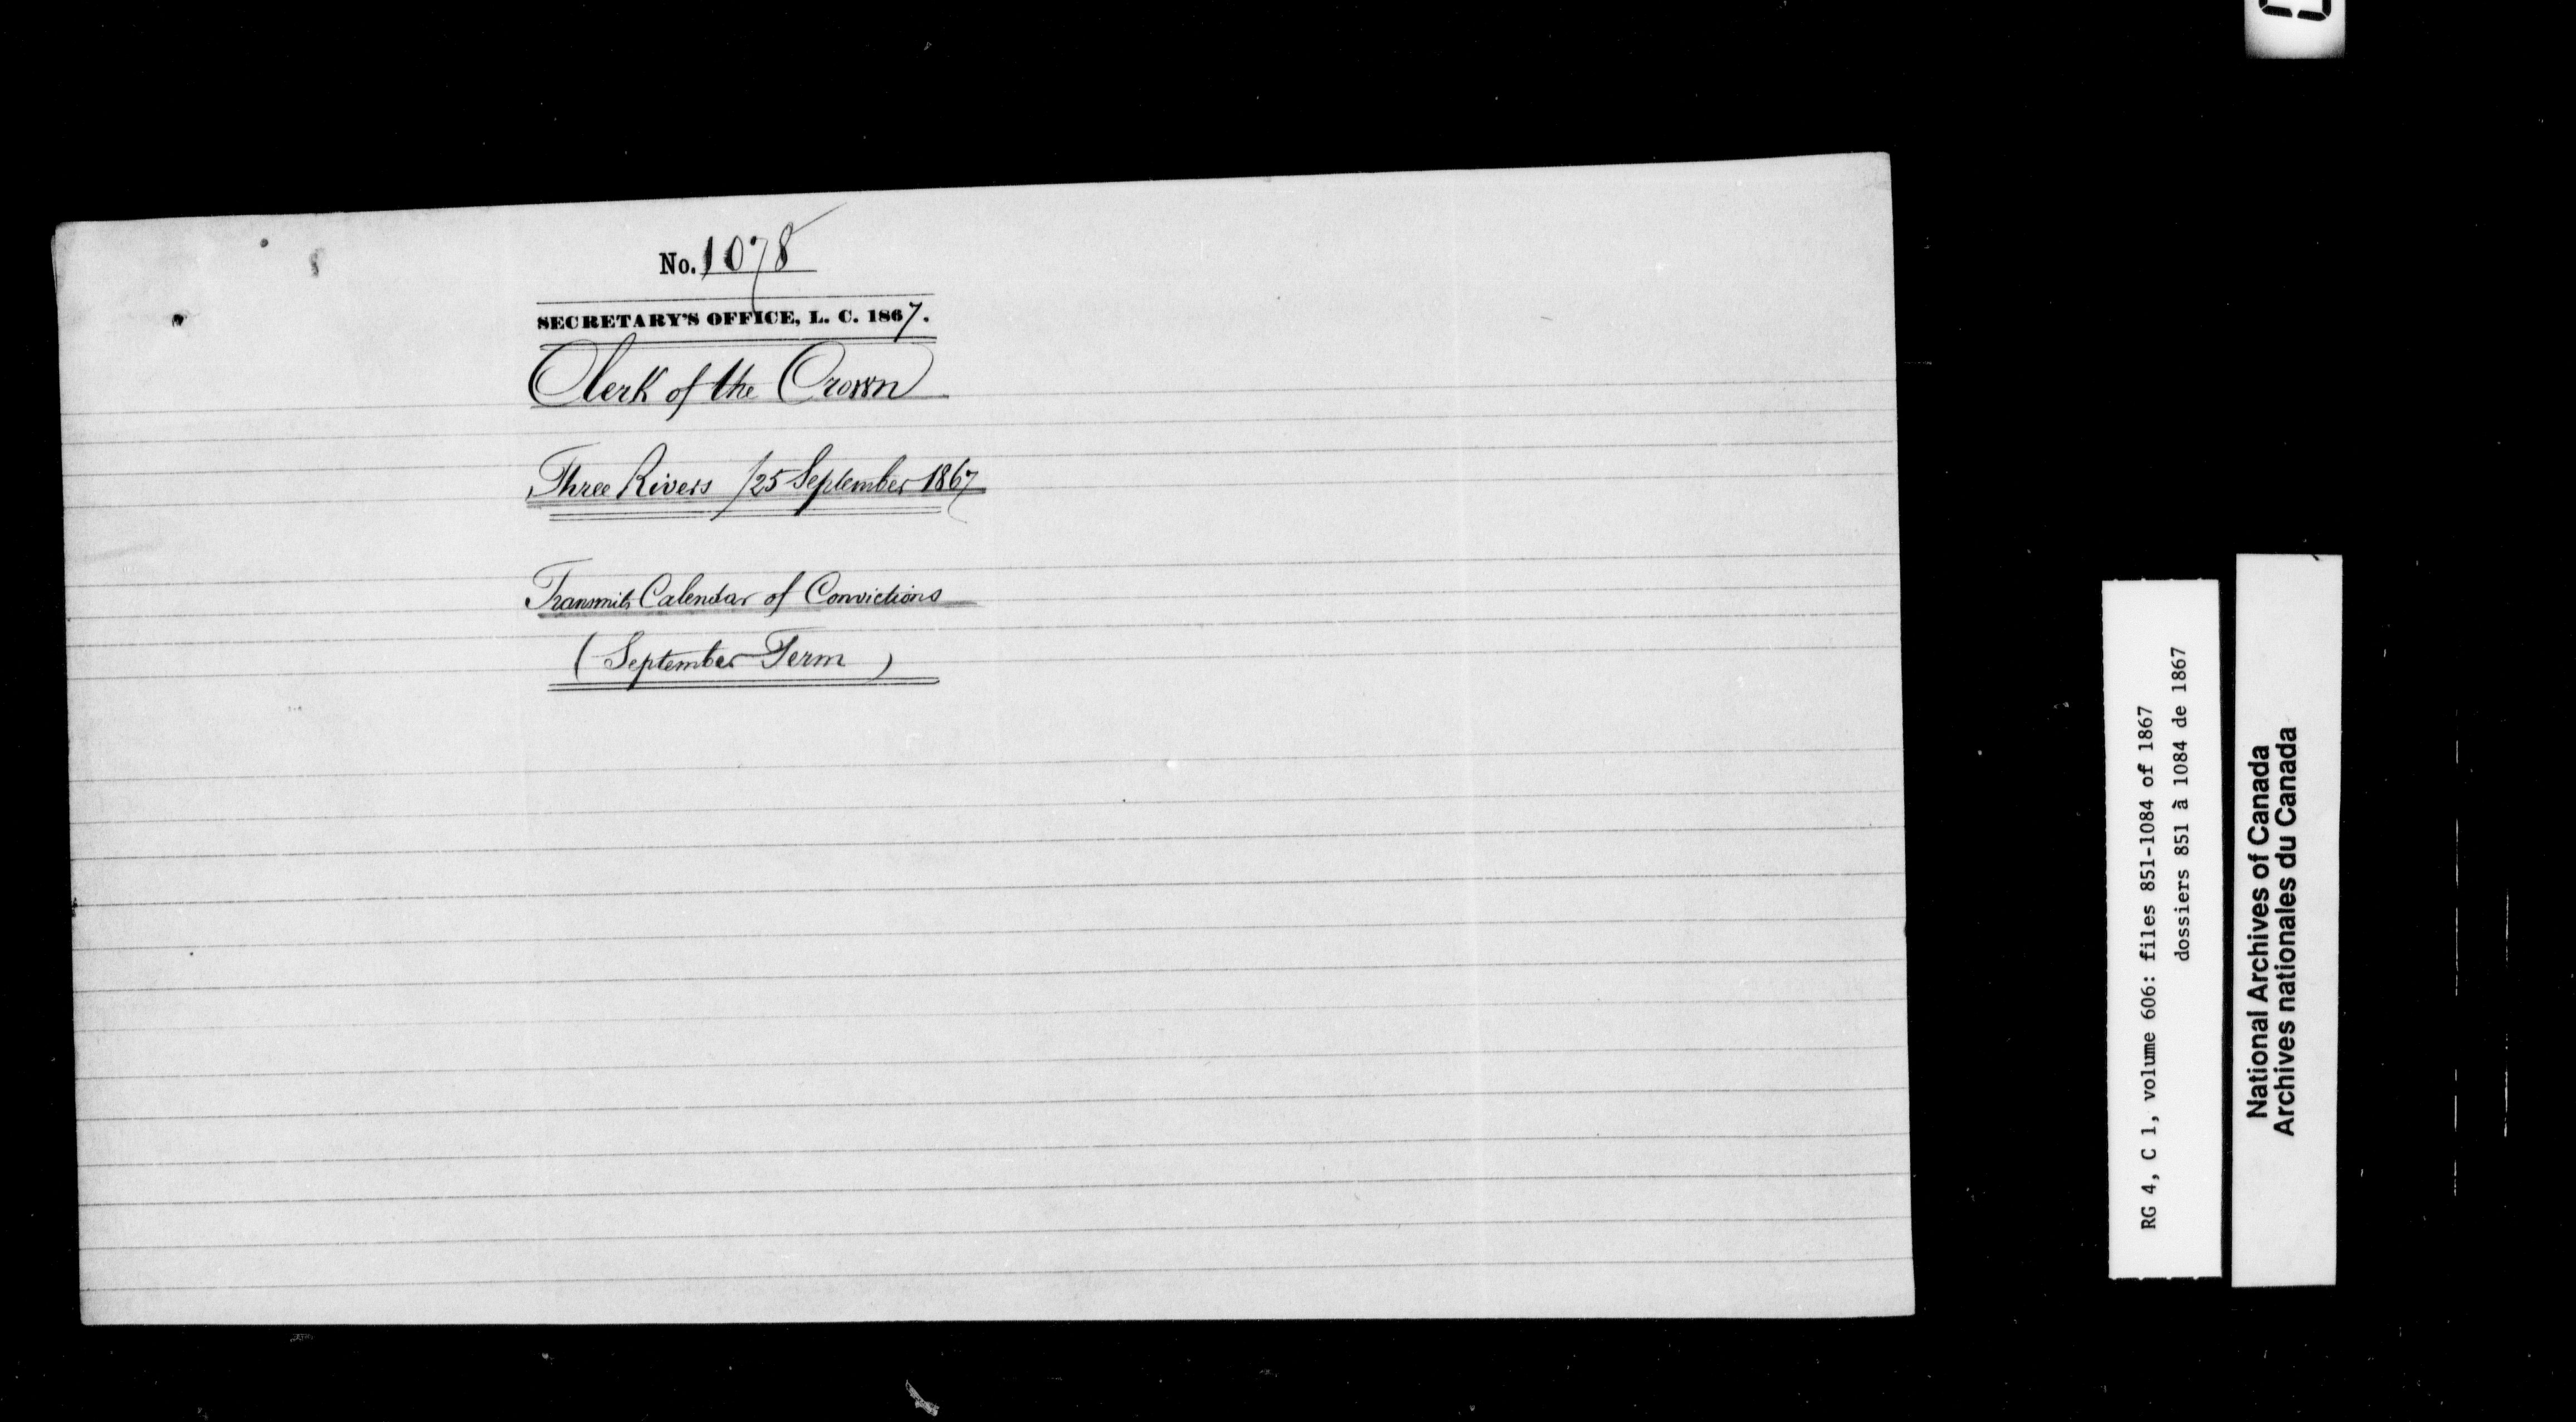 No. 1078
SECRETARY'S OFFICE, L. C. 1867.
Clerk of the Crown
Three Rivers /25 September 1867
Transmits Calendar of Convictions
( September Term )
RG 4, C 1, volume 606: files 851-1084 of 1867
dossiers 851 à 1084 de 1867
National Archives of Canada
Archives nationales du Canada